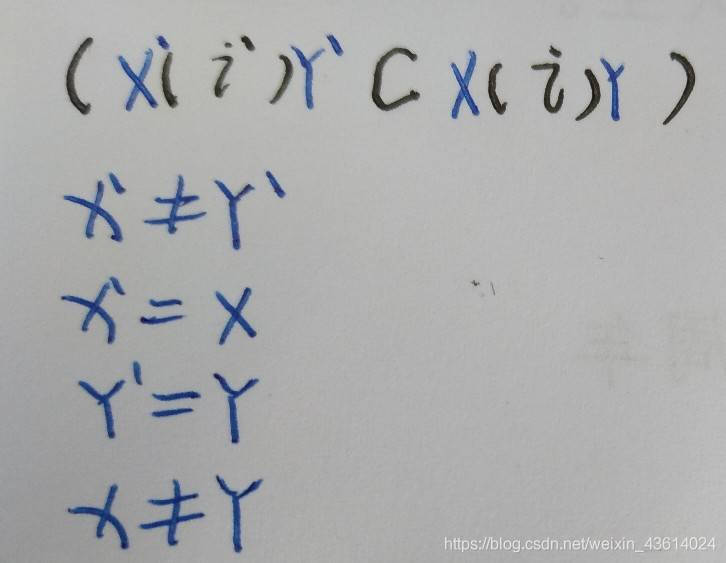 ( X`( i` )Y` C X( i )Y )
X` ≠ Y`
X` = X
Y' = Y
X ≠ Y
https://blog.csdn.net/weixin_43614024